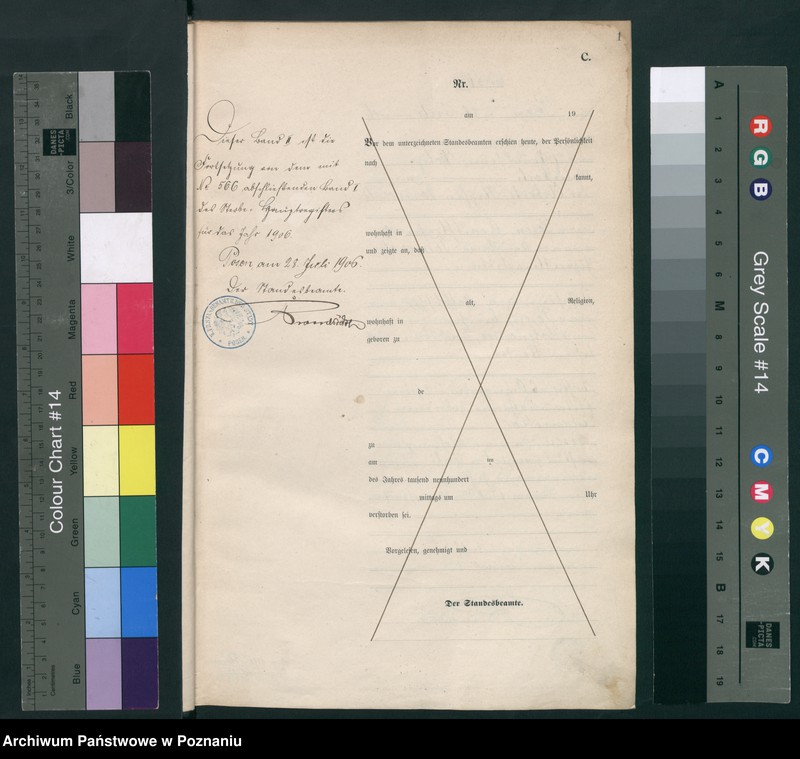 1
C.
Nr.
am 19
Vor dem unterzeichneten Standesbeamten erschien heute, der Persönlichkeit
nach
kannt,
wohnhaft in
und zeigte an, daß
alt, Religion,
wohnhaft in
geboren zu
de
zu
am um
des Jahres tausend neunhundert
mittags um Uhr
verstorben sei.
Vorgelesen, genehmigt und
Der Standesbeamte.
Dieser Band II ist die
Fortsetzung von dem mit
No 566 abschließenden Band I
des Sterbe-Hauptregisters
für das Jahr 1906.
Posen am 28. Juli 1906.
Der Standesbeamte.
POSEN
Colour Chart #14
Blue
Cyan
Green
Yellow
Red
Magenta
White
3/Color
Black
Inches
Centimetres
DANES
-PICTA
Grey Scale #14
R
G
B
C
M
Y
K
A
1
2
3
4
5
6
M
8
9
10
11
12
13
14
15
B
17
18
19
DANES
-PICTA
.COM
Archiwum Państwowe w Poznaniu